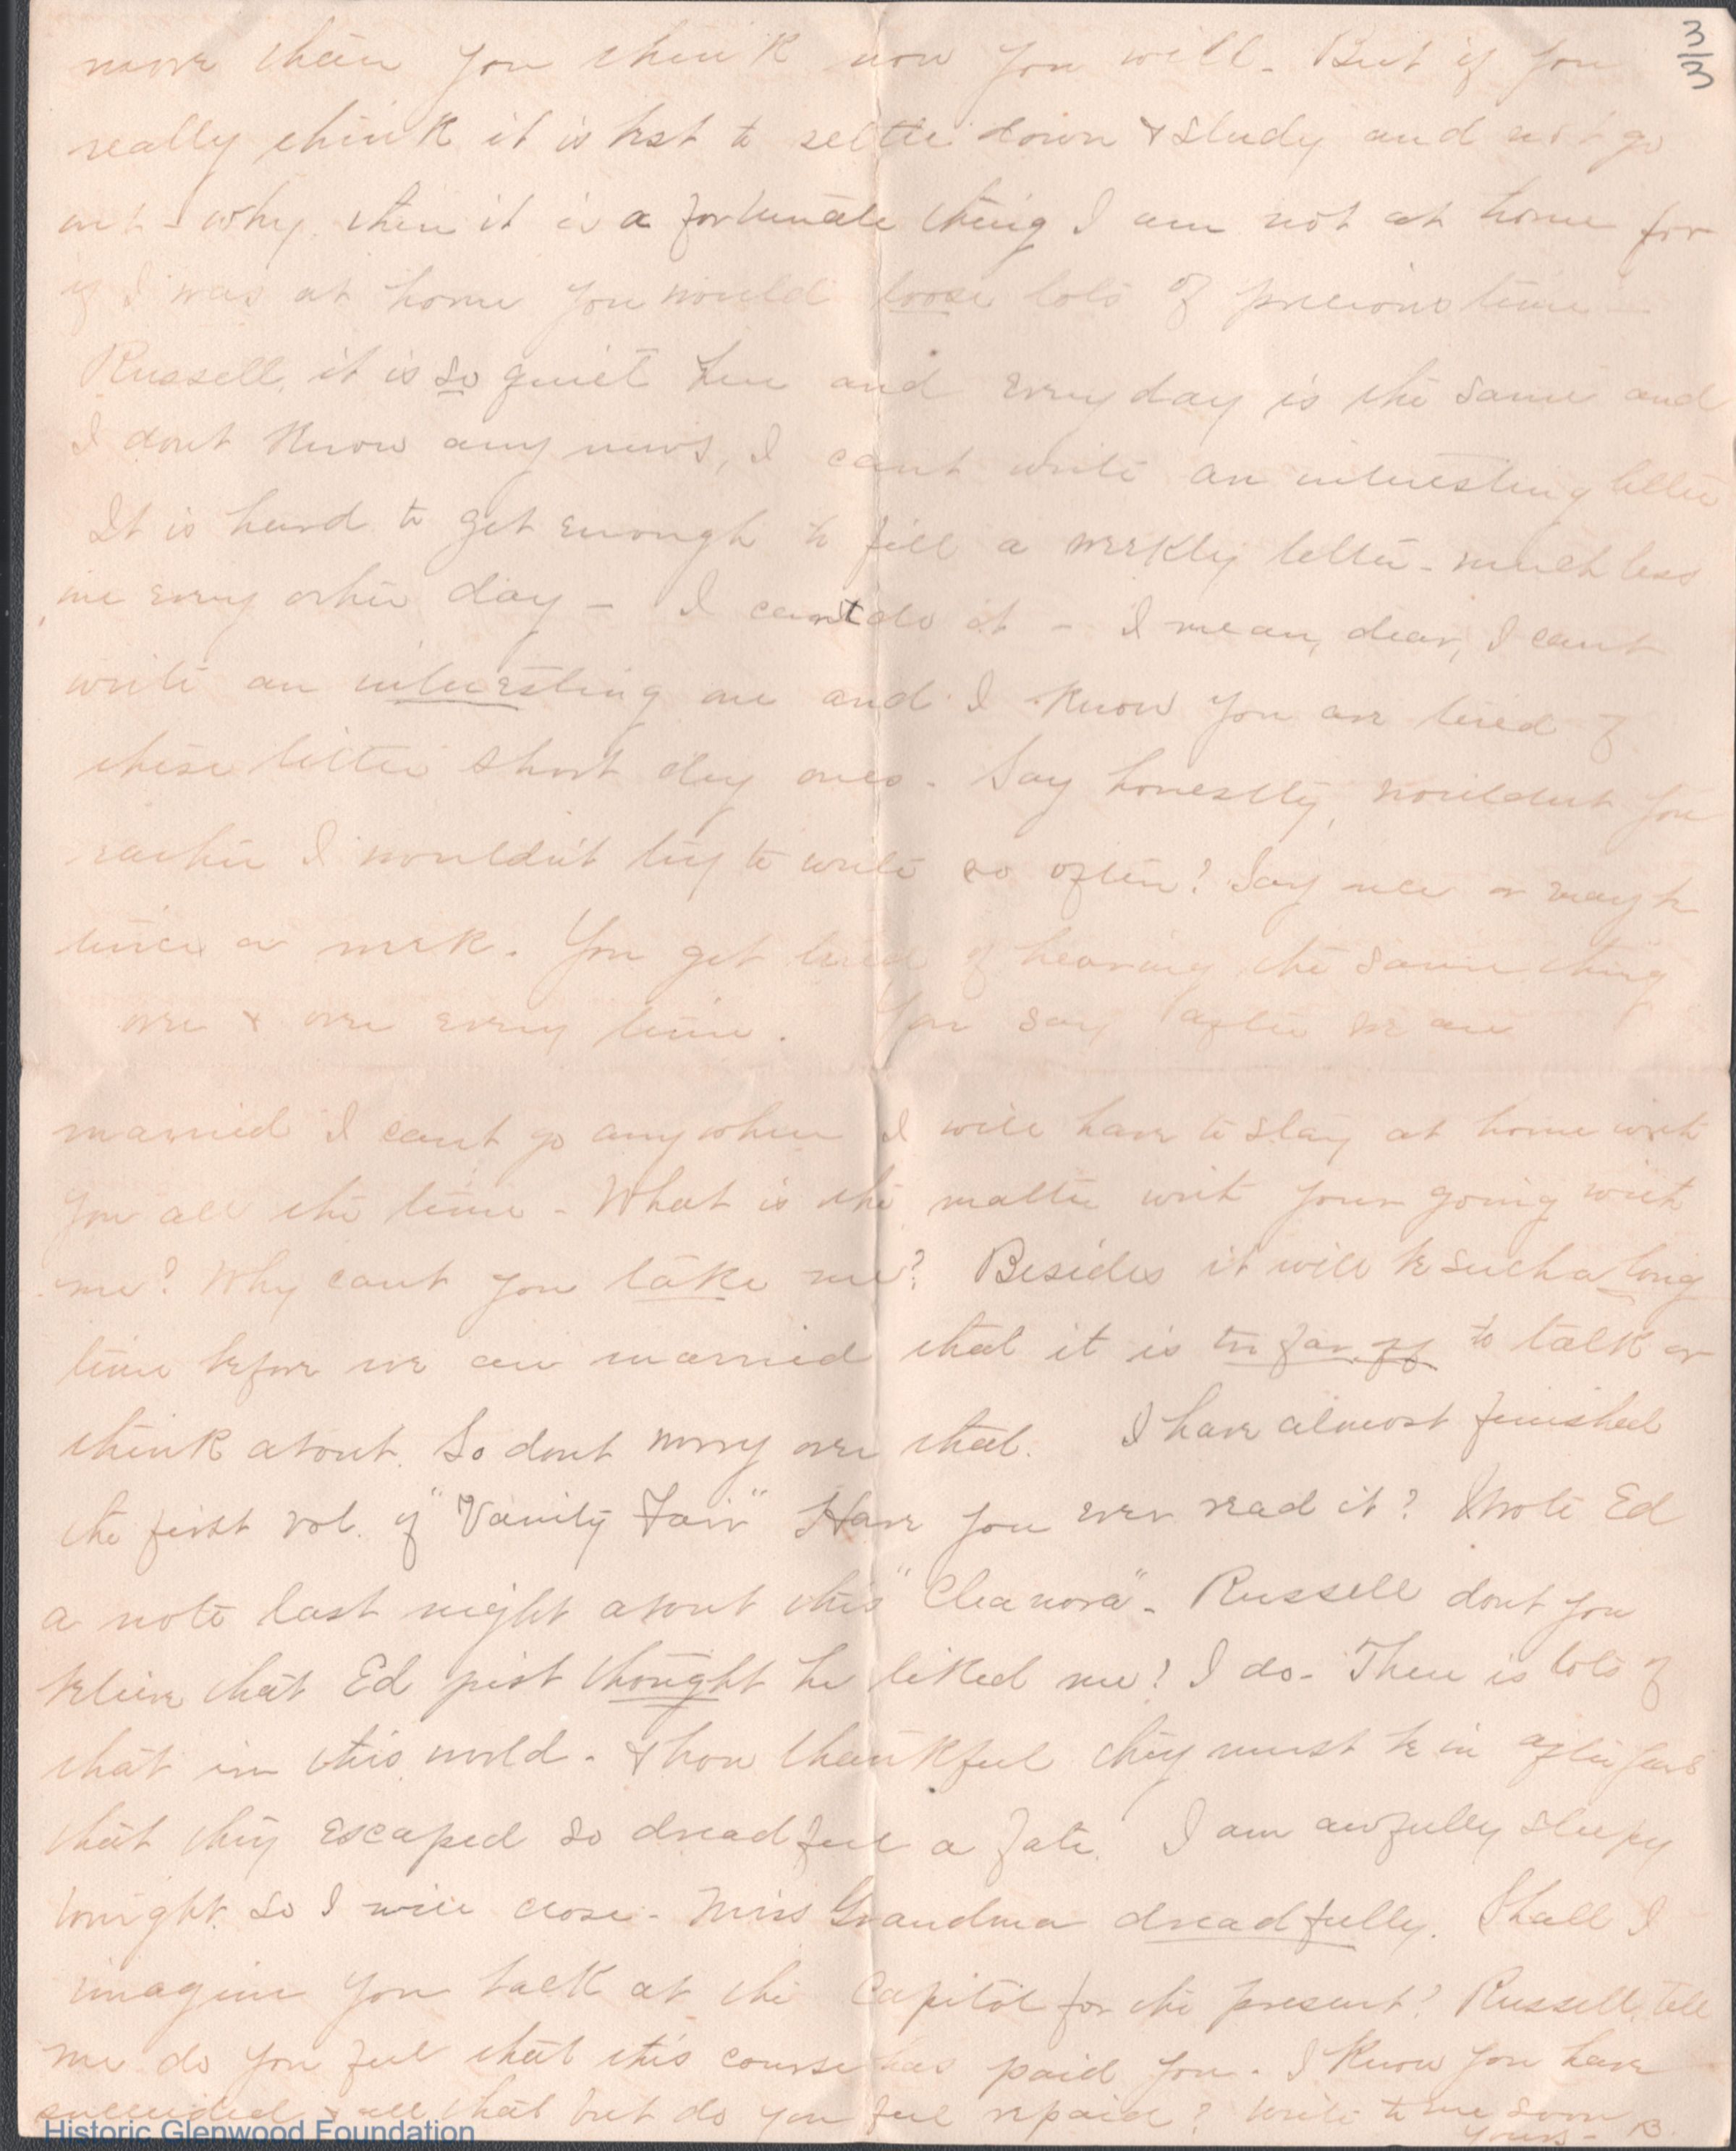 3/3
more than you think now you will - But if you
really think it is best to settle down & study and not go
out - why, then it is a fortunate thing I am not at home for
if I was at home you would loose lots of precious time -
Russell, it is so quiet here and every day is the same and
I dont know any news, I cant write an interesting letter
It is hard to get enough to fill a weekly letter - much less
one every other day - I cant do it - I mean, dear, I cant
write an interesting one and I know you are tired of
these little short dry ones - Say honestly, wouldnt you
rather I wouldn't try to write so often? Say once or maybe
twice a week. You get tired of hearing the same thing
over & over every time. You say after we are
married I cant go anywhere I will have to stay at home with
you all the time - What is the matter with your going with
me? Why cant you take me? Besides it will be such a long
time before we are married that it is too far off to talk or
think about. So dont worry over that. I have almost finished
the first vol. of "Vanity Fair" Have you ever read it? Wrote Ed
a note last night about this "Cleanora" - Russell dont you
believe that Ed just thought he liked me? I do - There is lots of
that in this world - & how thankful they must be in after years
that they escaped so dreadful a fate. I am awfully sleepy
tonight so I will close - Miss Grandma dreadfully. Shall I
imagine you back at the Capitol for the present? Russell, tell
me do you feel that this course has paid you - I know you have
succeeded & all that but do you feel repaid? Write to me soon
Yours - B.
Historic Glenwood Foundation